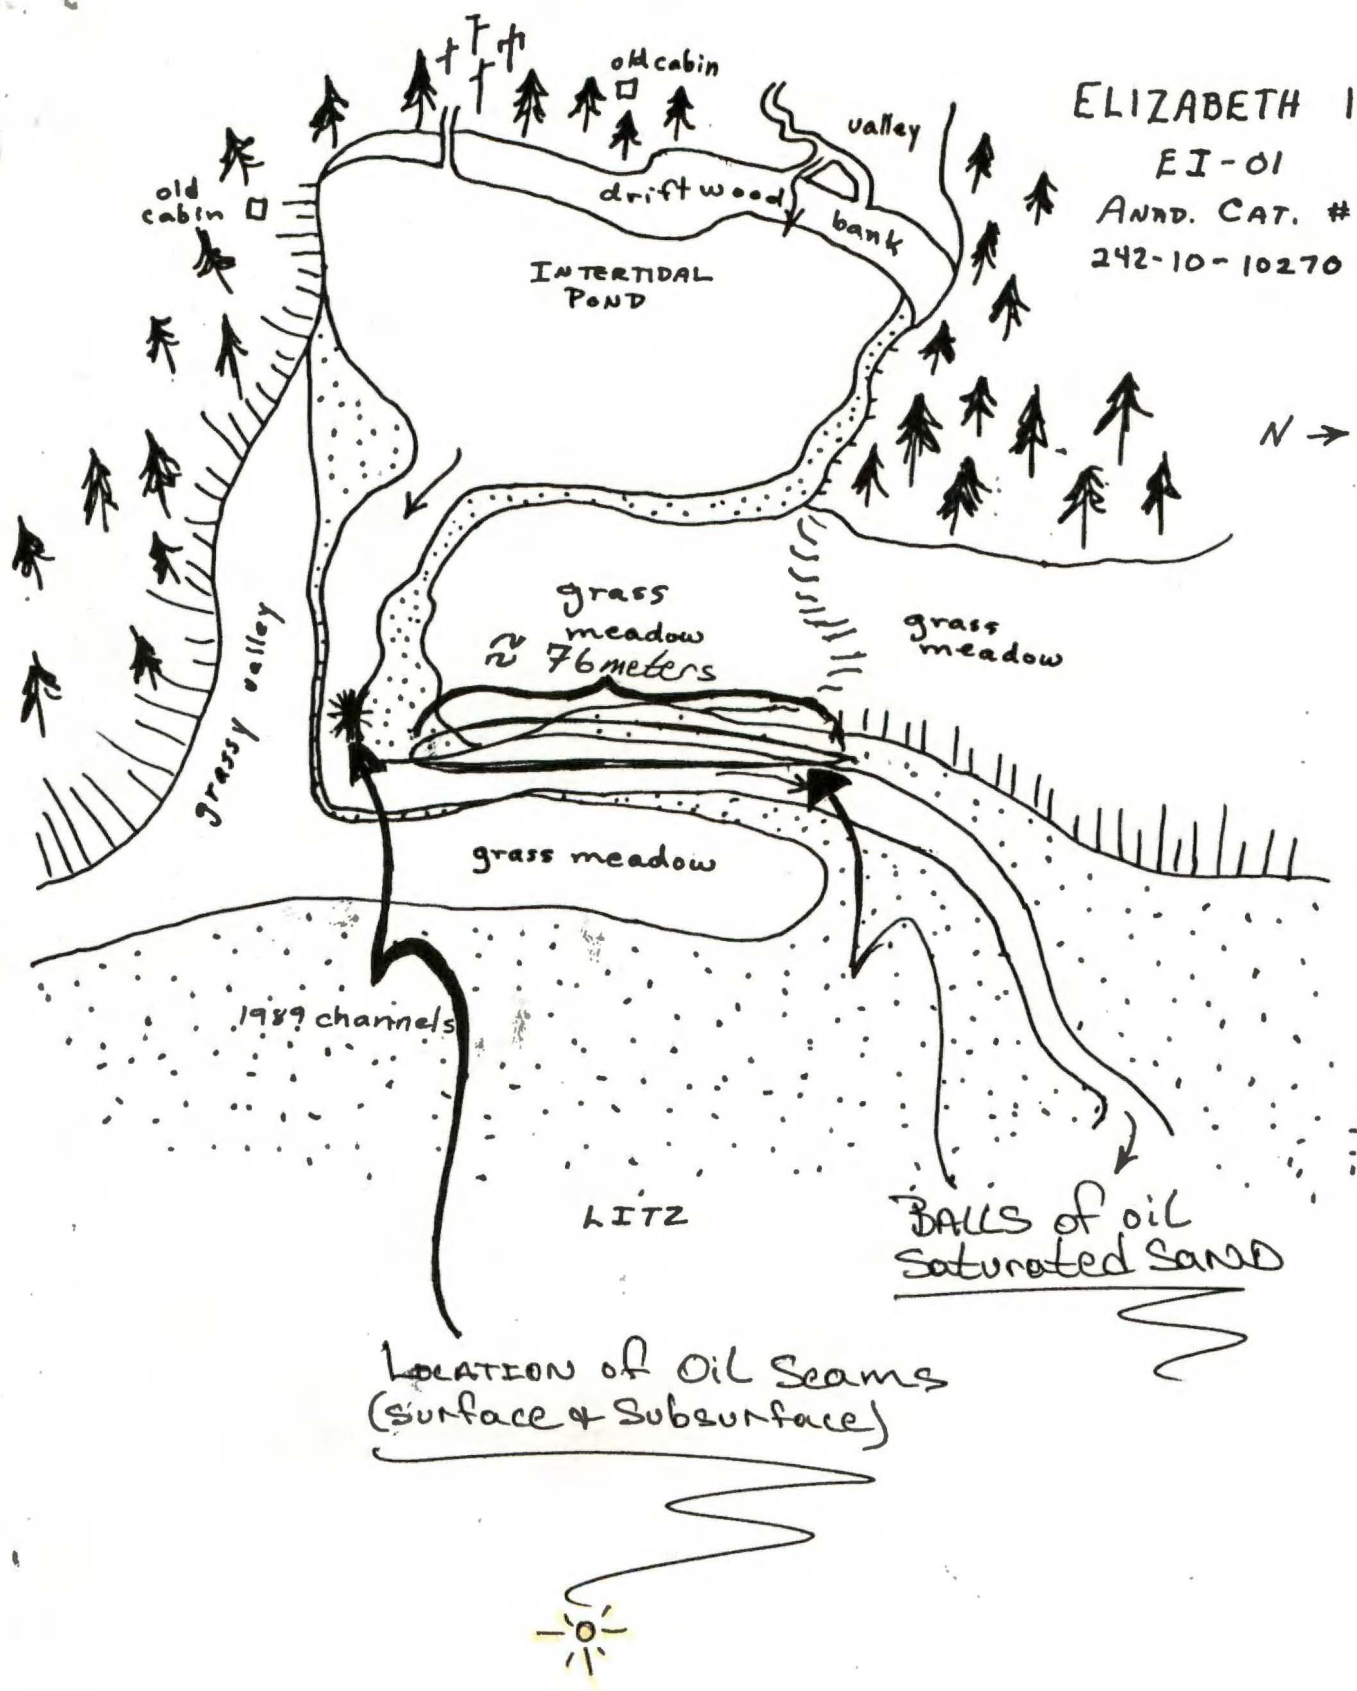 old cabin
ELIZABETH 1
EI-01
ANAD. CAT. #
242-10-10270
valley
old
cabin
driftwood
bank
INTERTIDAL
POND
N →
grass
meadow
≈ 76 meters
grass
meadow
grassy valley
grass meadow
1989 channels
LITZ
BALLS of oil
Saturated SAND
LOCATION of Oil Seams
(Surface & Subsurface)